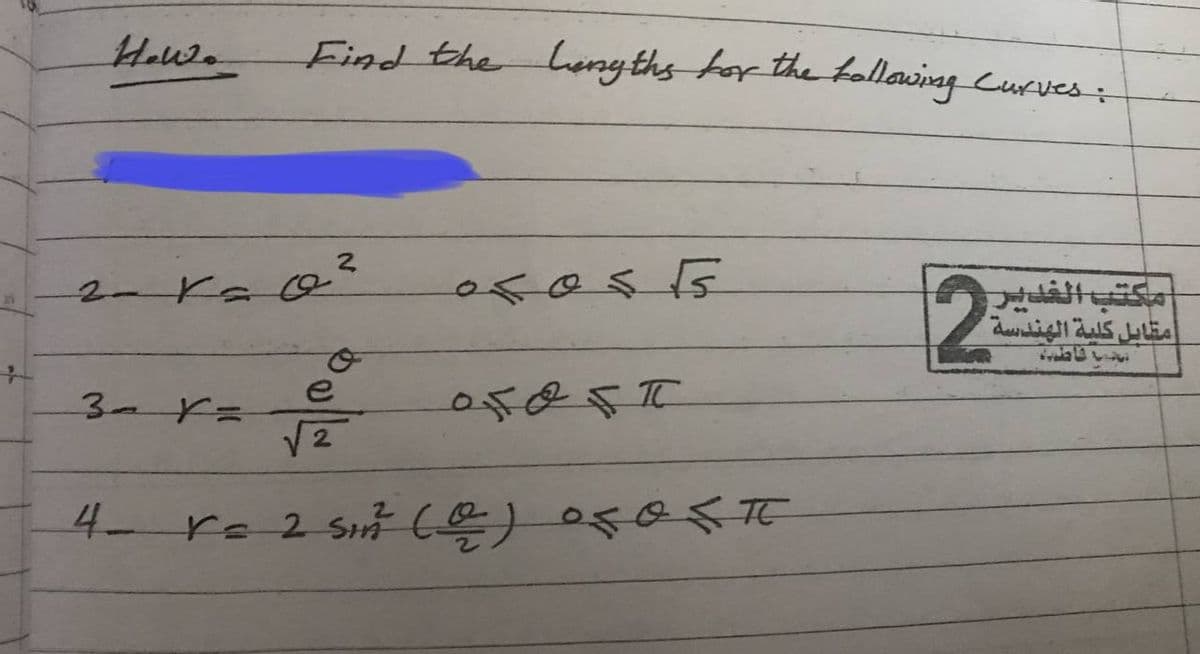 H.W. Find the Lengths for the following Curves :
2- r = θ² 0 ≤ θ ≤ √5
3- r = e^θ / √2 0 ≤ θ ≤ π
4- r = 2 sin² (θ/2) 0 ≤ θ ≤ π
2
مكتب الغدير
مقابل كلية الهندسة